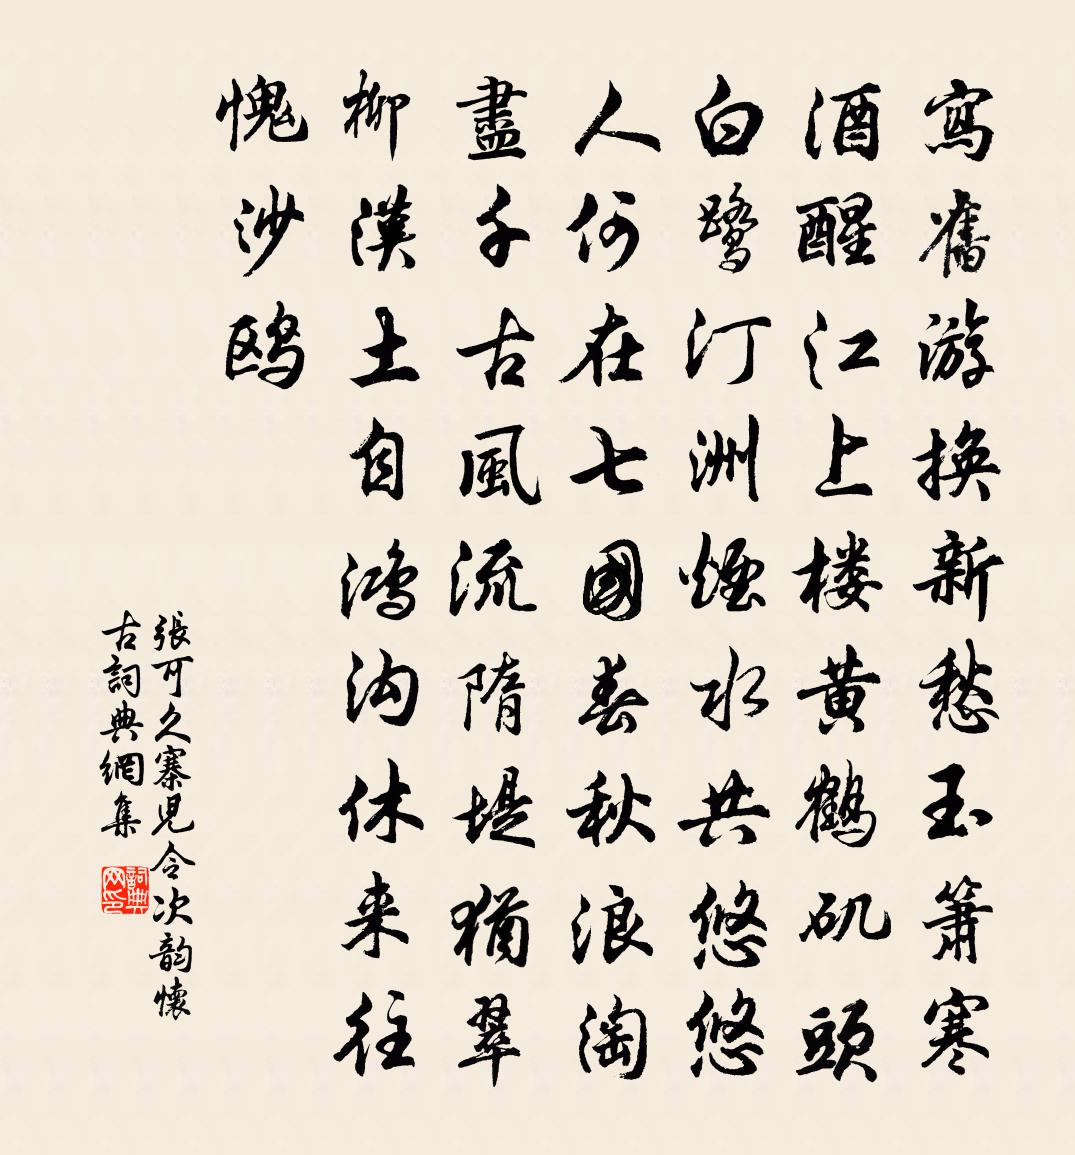 寫舊游換新愁玉簫寒
酒醒江上楼黃鶴矶頭
白鹭汀洲煙水共悠悠
人何在七國春秋浪淘
盡千古風流隋堤猶翠
柳漢土自鴻沟休来往
愧沙鸥
張可久寨児令次韵懷
古詞典網集
詞典网印